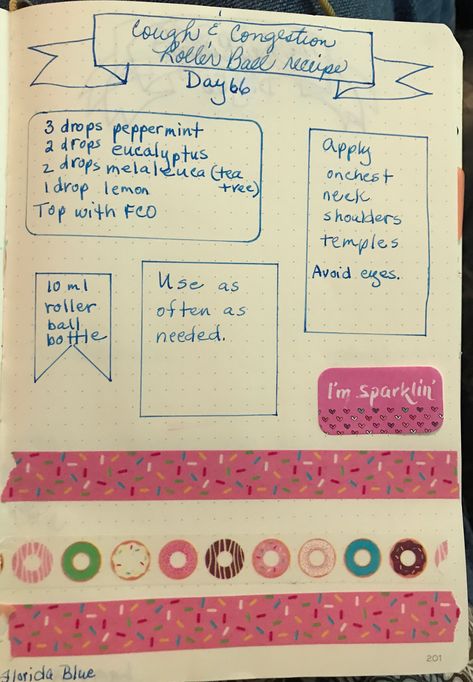 Cough & Congestion
Roller Ball recipe
Day 66
3 drops peppermint
2 drops eucalyptus
2 drops melaleuca (tea
tree)
1 drop lemon
Top with FCO
Apply
on chest
neck
shoulders
temples
Avoid eyes.
10 ml
roller
ball
bottle
Use as
often as
needed.
I'm Sparklin'
201
Florida Blue